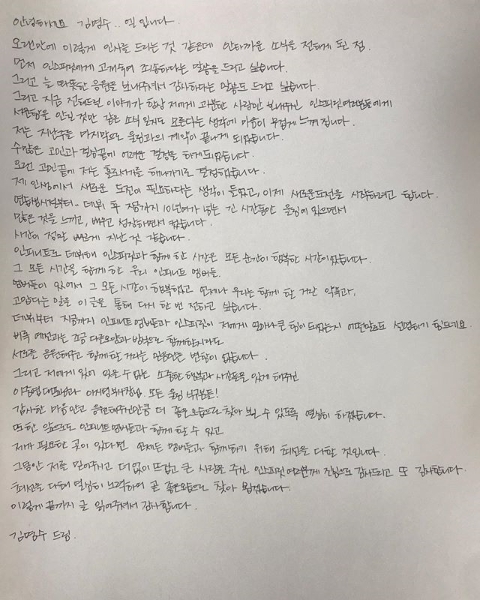 안녕하세요 김명수.. 엘입니다
오랜만에 이렇게 인사를 드리는 것 같은데 안타까운 소식을 전하게 된 점.
먼저 인스피릿에게 고개숙여 죄송하다는 말씀을 드리고 싶습니다.
그리고 늘 따뜻한 응원을 보내주셔서 감사하다는 말씀도 드리고 싶습니다.
그리고 지금 전해드릴 이야기가 항상 저에게 과분한 사랑만 보내주신 인스피릿여러분들에게
서운함을 안길 것만 같은 소식일지도 모른다는 생각에 마음이 무겁게 느껴집니다.
저는 지난주를 마지막으로 울림과의 계약이 끝나게 되었습니다.
수많은 고민과 결심끝에 어려운 결정을 하게되었습니다.
오랜 고민끝에 저는 홀로서기를 해나가기로 결정했습니다.
제 인생에서 새로운 도전이 필요하다는 생각이 들었고, 이제 새로운도전을 시작하려고 합니다.
연습생시절부터.. 데뷔 후 지금까지 10년여가 넘는 긴 시간동안 울림에 있으면서
많은 것을 느끼고, 배우고 성장하면서 왔습니다.
시간이 정말 빠르게 지난 것 같습니다.
인피니트로 데뷔하여 인스피릿과 함께 한 시간은 모든 순간이 행복한 시간이었습니다.
그 모든 시간을 함께해 준 우리 인피니트 멤버들.
멤버들이 있어서 그 모든 시간이 행복했었고 언제나 우리는 함께 할 거란 약속과,
고맙다는 말을 이 글을 통해 다시 한 번 전하고 싶습니다.
데뷔부터 지금까지 인피니트 멤버들과 인스피릿이 저에게 얼마나 큰 힘이 되었는지 어떤말로도 설명하기 힘드네요.
비록 예전과는 조금 다른모양과 방식으로 함께할지라도
서로를 응원해주고 함께 할 거라는 믿음만은 변함이 없습니다.
그리고 저에게 있어 잊을 수 없는 소중한 행복과 시간들을 있게 해주신
이중엽대표님과 모든 울림 식구분들!
감사한 마음 안고 응원해주신만큼 더 좋은모습으로 찾아 뵐 수 있도록 열심히 하겠습니다.
또한 앞으로도 인피니트멤버들과 함께 할 수 있고
저가 필요한 곳이 있다면 언제든 멤버들과 함께하기 위해 최선을 다할 것입니다.
그동안 저를 믿어주시고 더없이 뜨겁고 큰 사랑을 주신 인스피릿여러분께 진심으로 감사드리고 또 감사합니다.
최선을 다해 열심히 노력하여 곧 좋은모습으로 찾아 뵙겠습니다.
이렇게 끝까지 글 읽어주셔서 감사합니다.
김명수 드림.